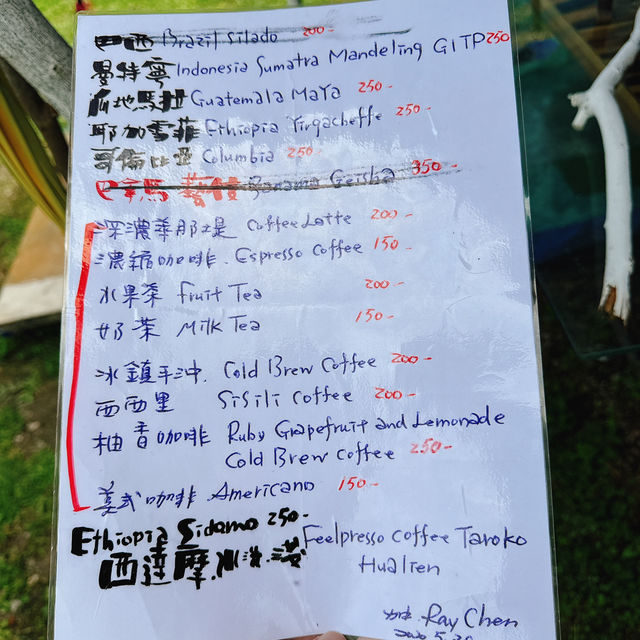 巴西 Brazil Silado 200-
曼特寧 Indonesia Sumatra Mandeling G1TP 250
瓜地馬拉 Guatemala Maya 250-
耶加雪菲 Ethiopia Yirgacheffe 250-
哥倫比亞 Columbia 250-
巴拿馬 藝伎 Banama Geisha 350-
深濃拿那堤 Coffee Latte 200-
濃縮咖啡. Espresso Coffee 150-
水果茶 Fruit Tea 200-
奶茶 Milk Tea 150-
冰鎮手沖. Cold Brew Coffee 200-
西西里 Sisili Coffee 200-
柚香咖啡 Ruby Grapefruit and Lemonade
Cold Brew Coffee 250-
美式咖啡 Americano 150-
Ethiopia Sidamo 250-
西達摩
Feelpresso Coffee Taroko
Hualien
Ray Chen